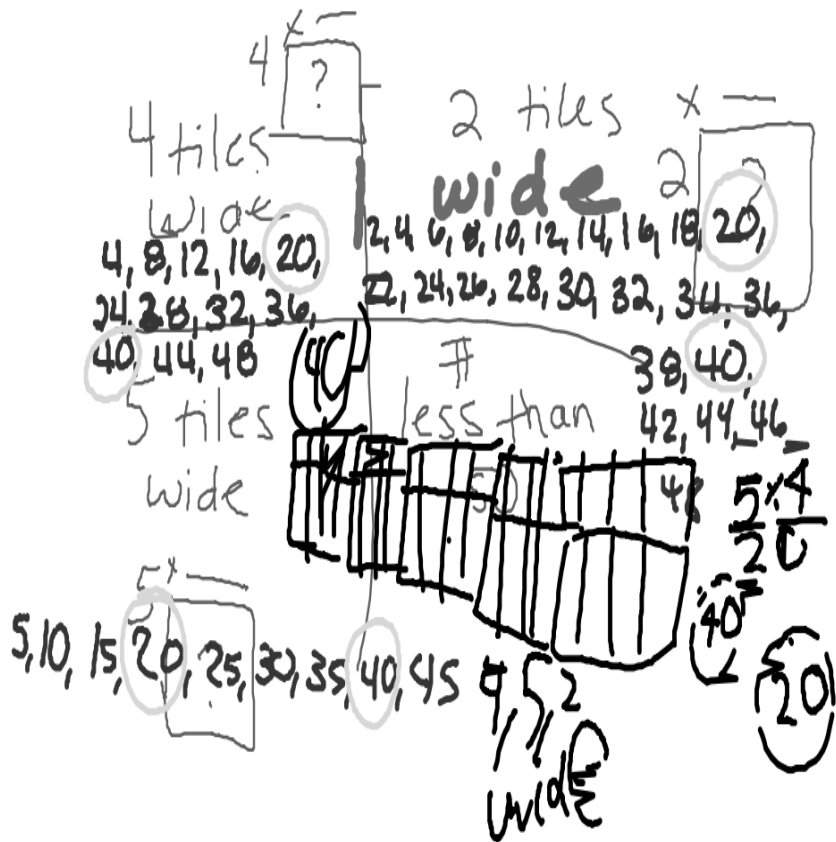 x —
4 ?
4 tiles
wide
4, 8, 12, 16, 20,
24, 28, 32, 36,
40, 44, 48
2 tiles x —
wide 2 ?
2, 4, 6, 8, 10, 12, 14, 16, 18, 20,
22, 24, 26, 28, 30, 32, 34, 36,
38, 40,
42, 44, 46
48
40
#
less than
50
5 tiles
wide
5 x —
5, 10, 15, 20, 25, 30, 35, 40, 45
5 x 4
20
40
20
4, 5, 2
wide